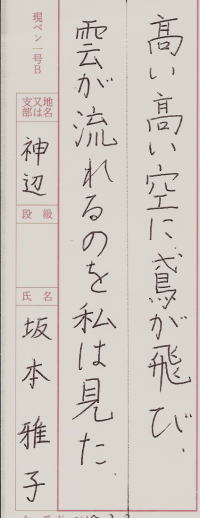 高い高い空に鳶が飛び、
雲が流れるのを私は見た。
現ペン一号B
地名又は支部
神辺
段級
氏名
坂本雅子